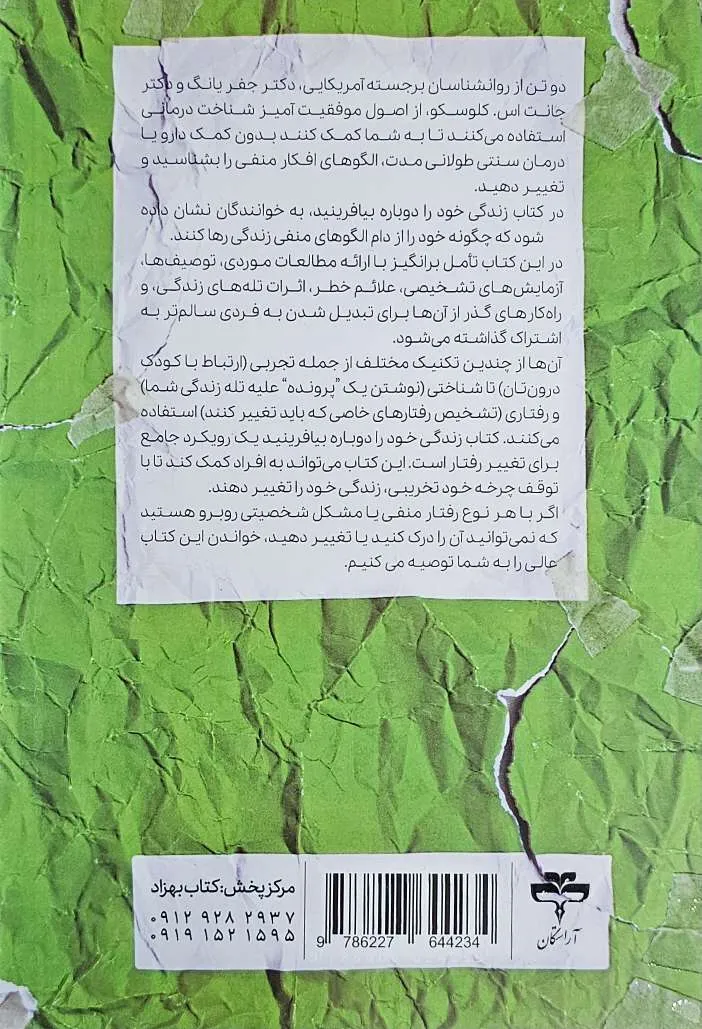 دو تن از روانشناسان برجسته آمریکایی، دکتر جفر یانگ و دکتر
جانت اس. کلوسکو، از اصول موفقیت آمیز شناخت درمانی
استفاده می‌کنند تا به شما کمک کنند بدون کمک دارو یا
درمان سنتی طولانی مدت، الگوهای افکار منفی را بشناسید و
تغییر دهید.
در کتاب زندگی خود را دوباره بیافرینید، به خوانندگان نشان داده
شود که چگونه خود را از دام الگوهای منفی زندگی رها کنند.
در این کتاب تأمل برانگیز با ارائه مطالعات موردی، توصیف‌ها،
آزمایش‌های تشخیصی، علائم خطر، اثرات تله‌های زندگی، و
راه‌کارهای گذر از آن‌ها برای تبدیل شدن به فردی سالم‌تر به
اشتراک گذاشته می‌شود.
آن‌ها از چندین تکنیک مختلف از جمله تجربی (ارتباط با کودک
درون‌تان) تا شناختی (نوشتن یک "پرونده" علیه تله زندگی شما)
و رفتاری (تشخیص رفتارهای خاصی که باید تغییر کنند) استفاده
می‌کنند. کتاب زندگی خود را دوباره بیافرینید یک رویکرد جامع
برای تغییر رفتار است. این کتاب می‌تواند به افراد کمک کند تا با
توقف چرخه خود تخریبی، زندگی خود را تغییر دهند.
اگر با هر نوع رفتار منفی یا مشکل شخصیتی روبرو هستید
که نمی‌توانید آن را درک کنید یا تغییر دهید، خواندن این کتاب
عالی را به شما توصیه می کنیم.
مرکز پخش: کتاب بهزاد
۰۹۱۲ ۹۲۸ ۲۹۳۷
۰۹۱۹ ۱۵۲ ۱۵۹۵
9 786227 644234
آراستگان